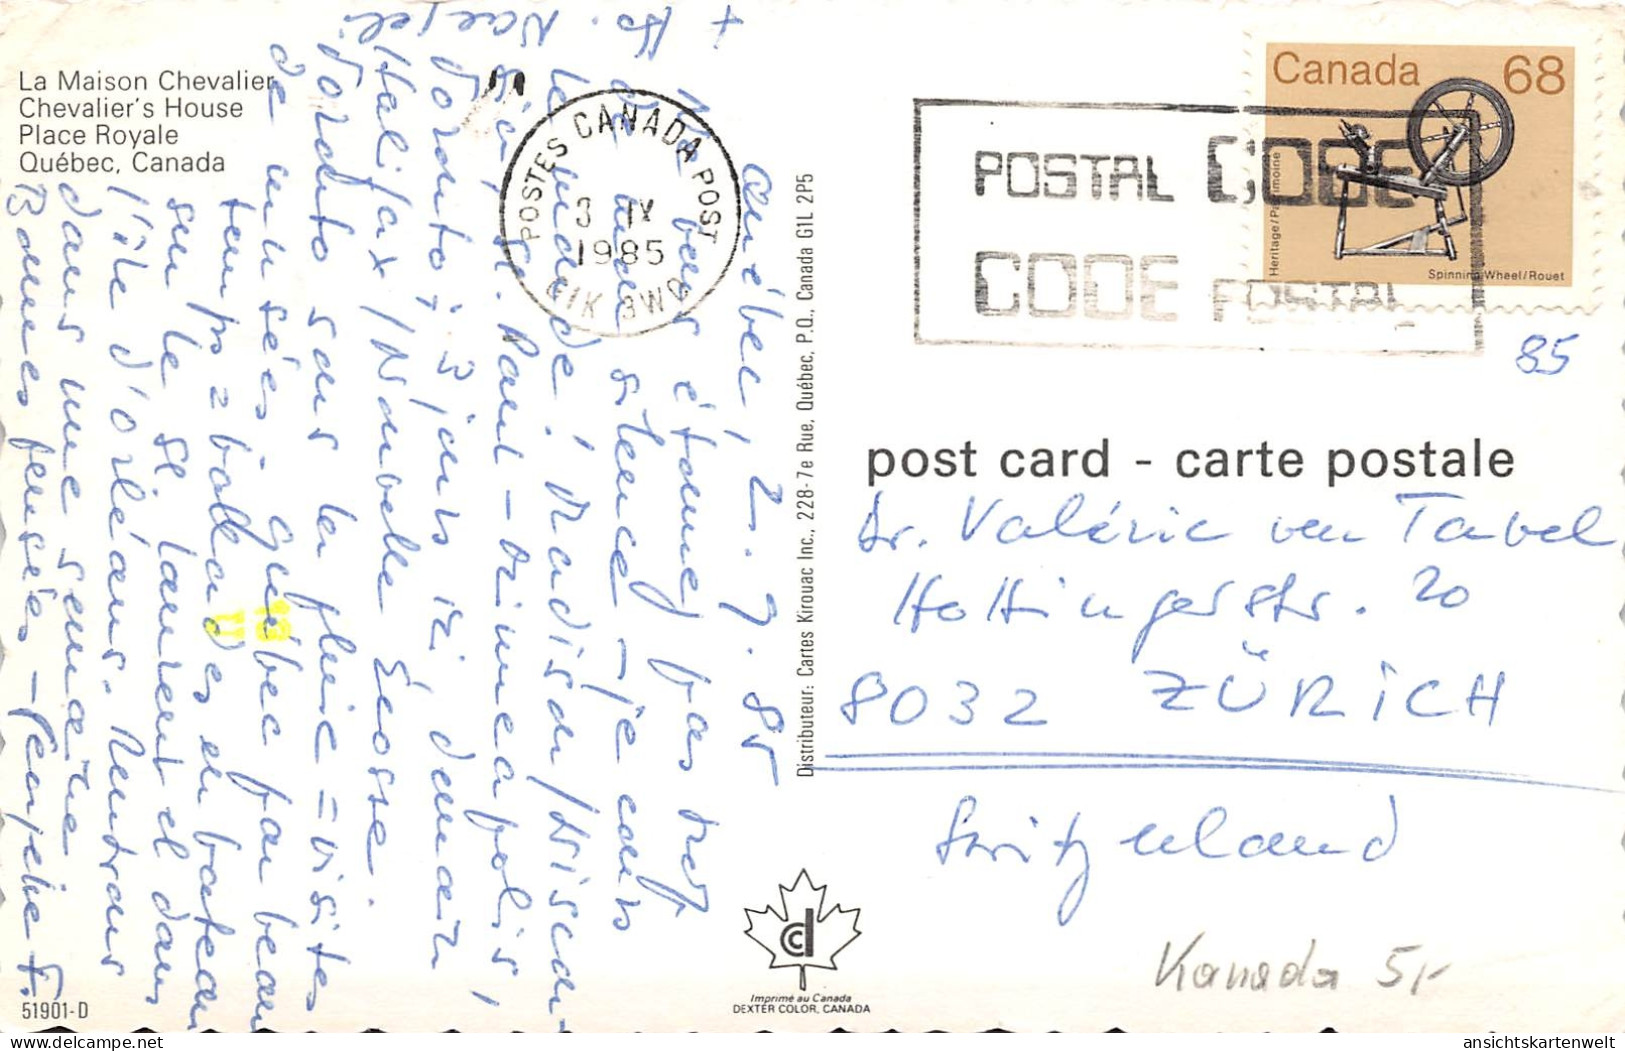 La Maison Chevalier
Chevalier's House
Place Royale
Québec, Canada
POSTES CANADA POST
3 IX
1985
G1K 3W0
POSTAL CODE
CODE POSTAL
Canada 68
Heritage/Patrimoine
Spinning Wheel/Rouet
85
post card - carte postale
Dr. Valérie von Tavel
Hottingerstr. 20
8032 ZÜRICH
Switzerland
Kanada 5,-
Québec, 2. 9. 85
Ne vous étonnez pas trop
de mon silence – je cours
le monde! Madison/Wiscon-
sin, St. Paul – Minneapolis,
Toronto, 3 jours ici, demain
Halifax/Nouvelle Écosse.
Toronto sous la pluie = visites
de musées, Québec par beau
temps = ballades en bateau
sur le St. Laurent et dans
l'île d'Orléans. Rentrons
dans une semaine
Bonnes pensées –
+ Naegeli
Distributeur: Cartes Kirouac Inc., 228-7e Rue, Québec, P.Q., Canada G1L 2P5
Imprimé au Canada
DEXTER COLOR, CANADA
51901-D
ansichtskartenwelt